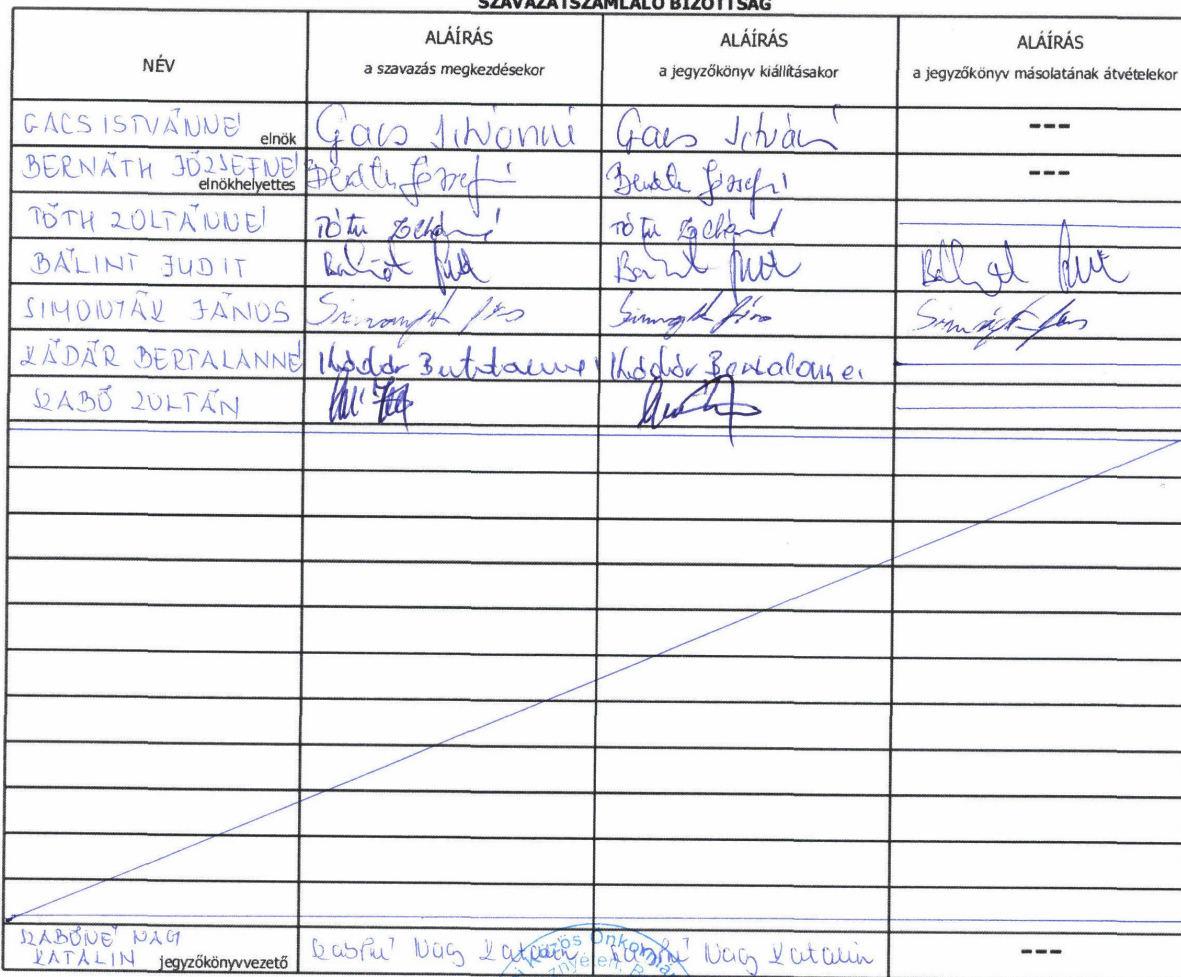 SZAVAZATSZÁMLÁLÓ BIZOTTSÁG
NÉV
ALÁÍRÁS
a szavazás megkezdésekor
ALÁÍRÁS
a jegyzőkönyv kiállításakor
ALÁÍRÁS
a jegyzőkönyv másolatának átvételekor
GACS ISTVÁNNÉ elnök Gacs Istvánné Gacs Istvánné ---
BERNÁTH JÓZSEFNÉ elnökhelyettes ---
TÓTH ZOLTÁNNÉ Tóth Zoltánné Tóth Zoltánné
BÁLINT JUDIT Bálint Judit Bálint Judit Bálint Judit
JÁNOS
KÁDÁR BERTALANNÉ Kádár Bertalanné Kádár Bertalanné
SZABÓ ZOLTÁN
SZABÓNÉ NAGY
KATALIN jegyzőkönyvvezető Szabóné Nagy Katalin Szabóné Nagy Katalin ---
Közös Önkormá